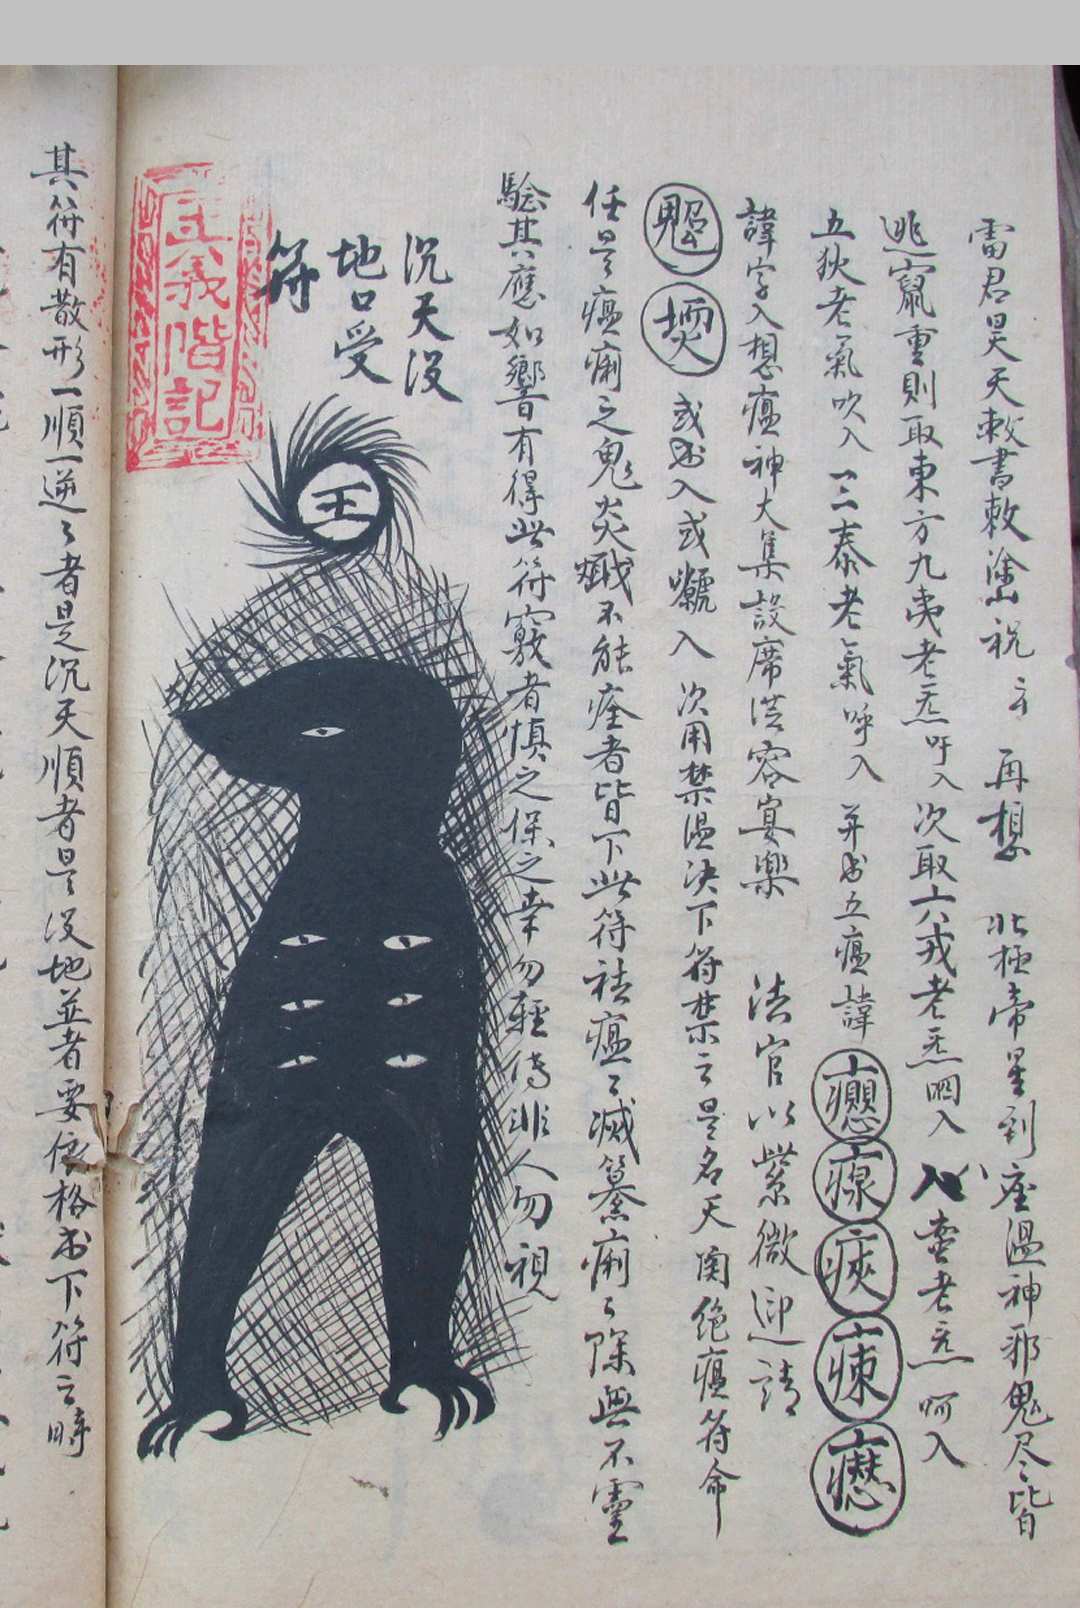 雷君昊天敕書敕塗山祝云再想北極帝星到座溫神邪鬼尽皆
逃竄重則取東方九夷老炁吁入次取六戎老炁呬入蛮老炁呵入
五狄老氣吹入三秦老氣呼入并书五瘟諱
諱字入想瘟神大集設席洪容宴樂法官以紫微迎請
或书入或入次用禁溫决下符禁云是名天関絶瘟符命
任是瘟痢之鬼炎不能痊者皆下此符祛瘟〻滅痢〻除無不靈
驗其應如響有得此符竅者慎之保之幸勿輕傳非人勿視
沉天没
地口受
符
王
義階記
其符有散形一順一逆〻者是沉天順者是没地並者要依格书下符之時